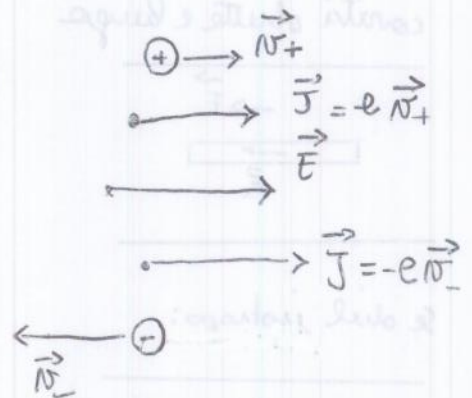 + v⃗₊
J⃗ = e v⃗₊
E⃗
J⃗ = -e v⃗₋
-
v⃗₋